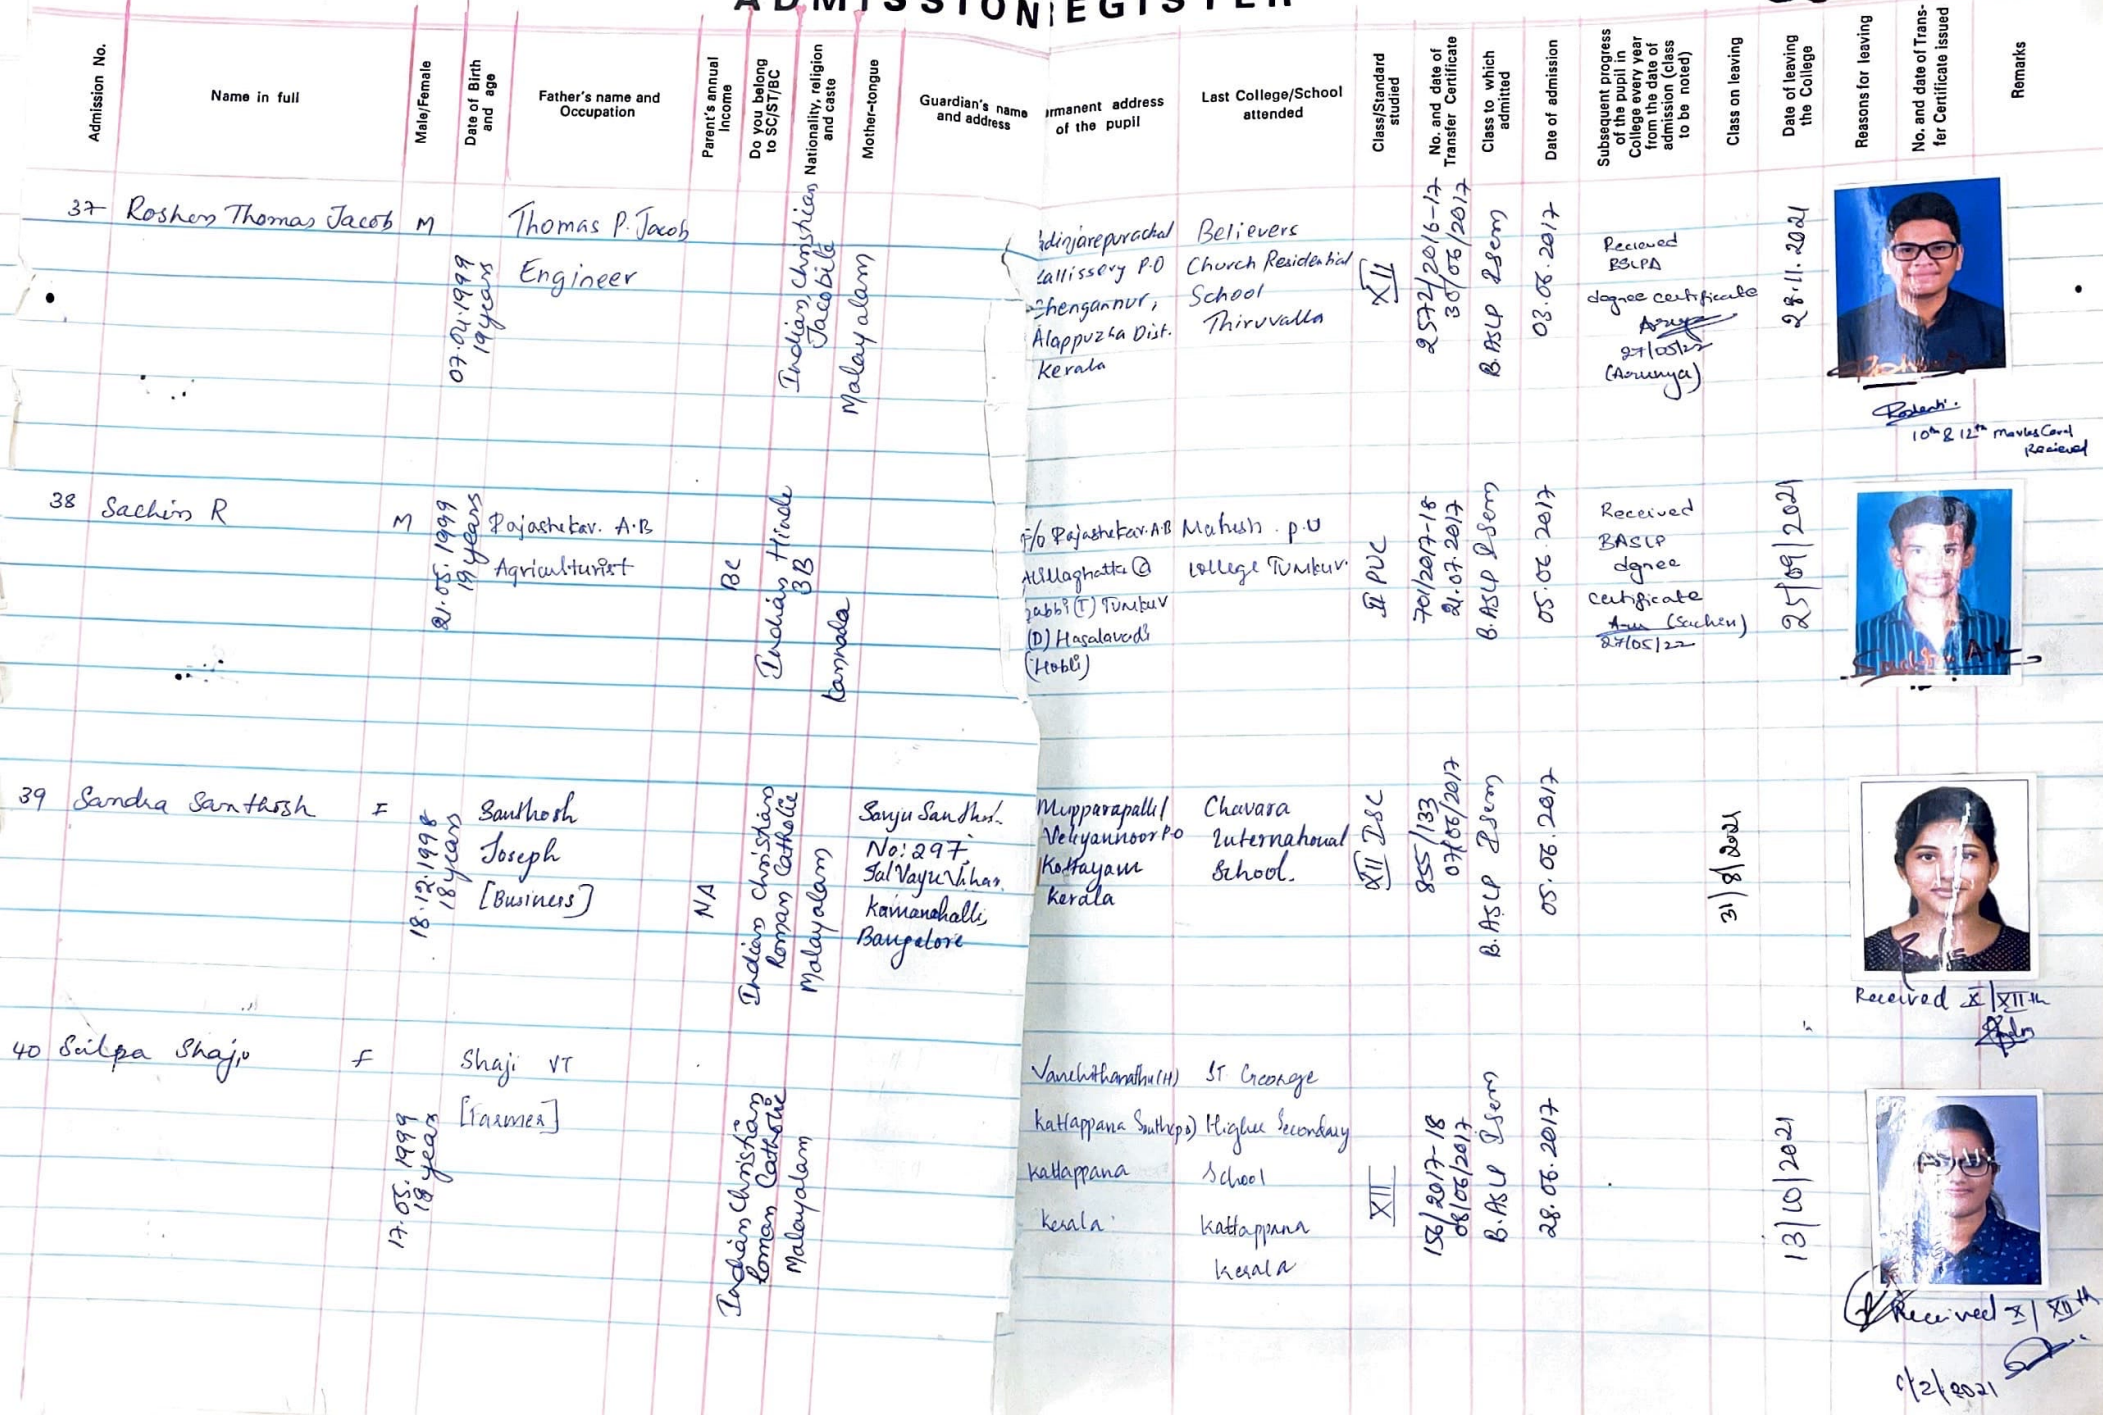 ADMISSION REGISTER
Admission No.
Name in full
Male/Female
Date of Birth
and age
Father's name and
Occupation
Parent's annual
Income
Do you belong
to SC/ST/BC
Nationality, religion
and caste
Mother-tongue
Guardian's name
and address
rmanent address
of the pupil
Last College/School
attended
Class/Standard
studied
No. and date of
Transfer Certificate
Class to which
admitted
Date of admission
Subsequent progress
of the pupil in
College every year
from the date of
admission (class
to be noted)
Class on leaving
Date of leaving
the College
Reasons for leaving
No. and date of Trans-
fer Certificate issued
Remarks
37
Roshen Thomas Jacob
M
07.04.1999
19 years
Thomas P. Jacob
Engineer
Indian, Christian
Jacobite
Malayalam
dinjarepurachal
allissery P.O
hengannur,
Alappuzha Dist.
Kerala
Believers
Church Residential
School
Thiruvalla
XII
2572/2016-17
30/06/2017
B.ASLP I Sem
03.06.2017
Recieved
BSLPA
degree certificate
27/05/22
(Arunya)
28.11.2021
10th & 12th Marks Card
Recieved
38
Sachin R
M
21.05.1999
19 years
Rajashekar. A.B
Agriculturist
BC
Indian Hindu
3B
Kannada
F/o Rajashekar.A.B
Allilaghatta @
gabbi (T) Tumkur
(D) Hagalavadi
(Hobli)
Mahesh. P.U
College Tumkur.
II PUC
701/2017-18
21.07.2017
B.ASLP I Sem
05.06.2017
Received
BASLP
dgree
certificate
(Sachin)
27/05/22
25/09/2021
39
Sandra Santhosh
F
18.12.1998
18 years
Santhosh
Joseph
[Business]
NA
Indian Christian
Roman Catholic
Malayalam
Sanju Santhosh.
No: 297,
Jal Vayu Vihar.
Kamanahalli,
Bangalore
Mupparapallil
Veliyannoor P.O
Kottayam
Kerala
Chavara
International
School.
XII ISC
855/133
07/06/2017
B.ASLP I Sem
05.06.2017
31/8/2021
Received X/XIIth
40
Silpa Shaji
F
17.05.1999
18 years
Shaji VT
[Farmer]
Indian Christian
Roman Catholic
Malayalam
Vanchithanathu (H)
Kattappana South (po)
Kattappana
Kerala
ST. George
Higher Secondary
School
Kattappana
Kerala
XII
156/2017-18
08/06/2017
B.ASLP I Sem
28.06.2017
13/10/2021
Received X/XIIth
1/2/2021